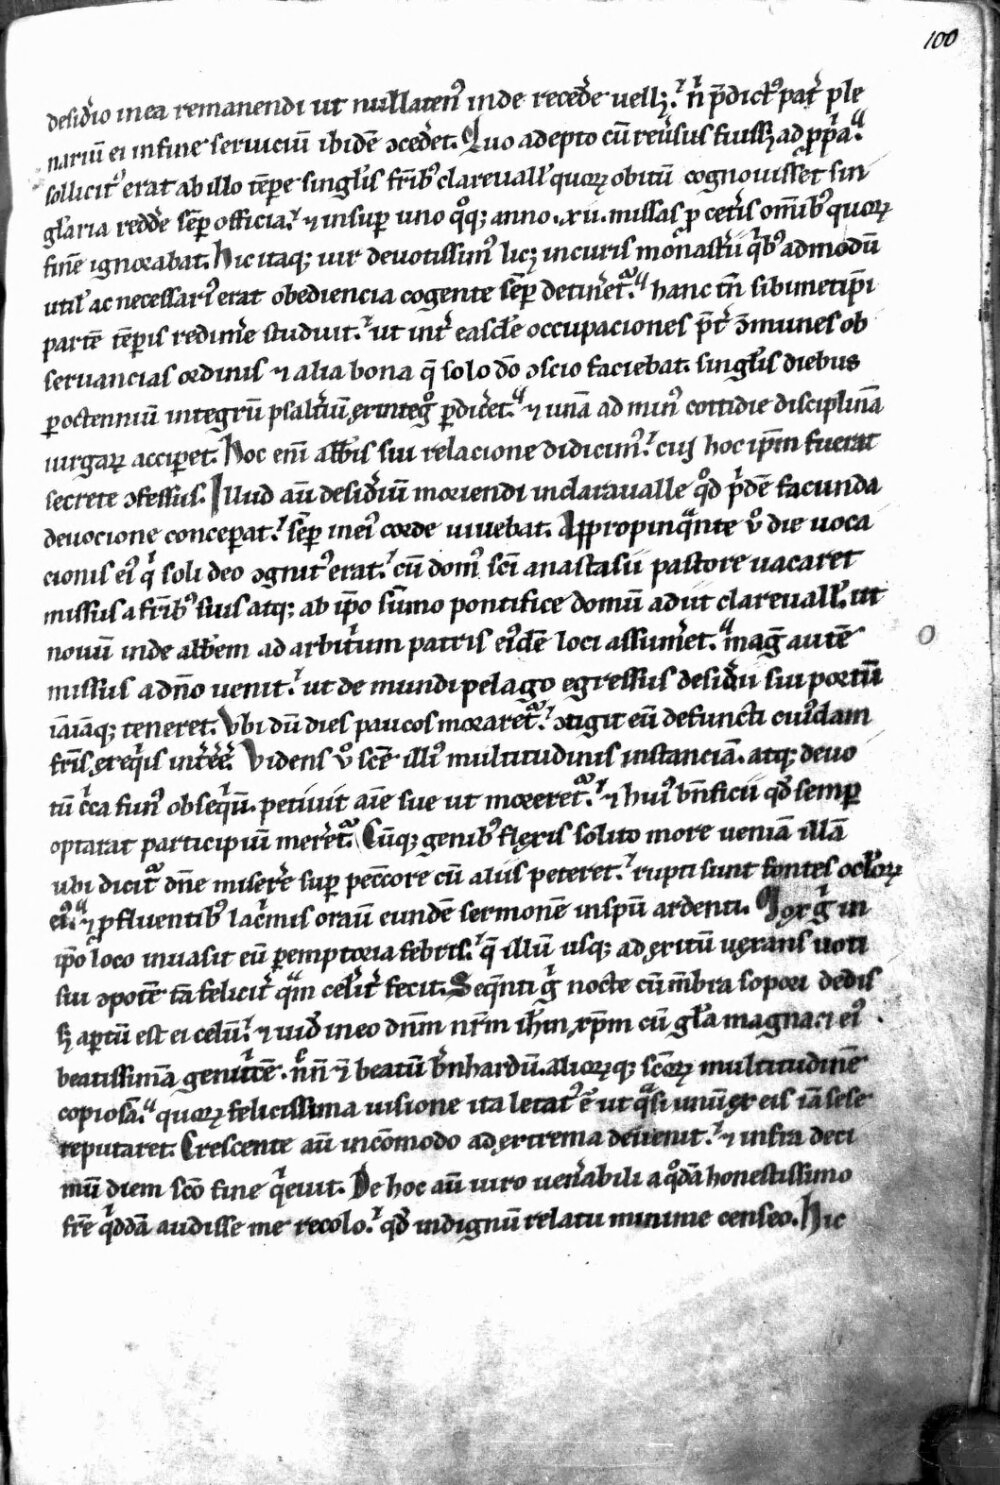 100
desid̾io in ea remanendi ut nullaten⁹ inde recede̾ uellꝫ. n̾ p̄dict⁹ pat̾ ple
nariū ei in fine seruiciū ibidē ꝯced̾et. Quo adepto cū reu̾sus fuissꝫ ad ꝓp̾a.
sollicit⁹ erat ab illo tēpe singl̾is fr̄ib⁹ clareuall̾ quoꝝ obitū cognouisset sin
gl̾aria redde̾ sēp officia. ⁊ insuper uno qͦqꝫ anno .xii. missas ꝓ cet̾is om̄ib⁹ quoꝝ
finē ignorabat. Hic itaqꝫ uir deuotissim⁹ licꝫ in curis mon̾astii qͥb⁹ admodū
util̾ ac necessari⁹ erat obediencia cogente sēp detin̾et᷑. hanc tn̄ sibimetip̄i
partē tēpis redime̾ studuit. ut int̾ easdē occupaciones p̄t̾ ꝯmunes ob
seruancias ordinis ⁊ alia bona q̄ solo dō ꝯscio faciebat. singl̾is diebus
ꝑ octenniū integrū psalt̾iū ex integͦ ꝑdic̾et. ⁊ unā ad min⁹ cottidie disciplinā
uirgaꝝ acciꝑet. Hoc eni᷑ abb̄is sui relacione didicim⁹. cui hoc ip̄m fuerat
secrete ꝯfessus. Illud aū desid̾iū moriendi in claraualle qͦd p̾dē facunda
deuocione conceꝑat. sēp in ei⁹ corde uiuebat. Appropinqᵃnte v̾o die uoca
cionis ei⁹ qͥ soli deo ꝯgnit⁹ erat. cū dom⁹ sc̄i anastasii pastore uacaret
missus a fr̄ib⁹ suis atqꝫ ab ip̄o sūmo pontifice domū adut clareuall̾. ut
nouū inde abb̄em ad arbit̾um patris ei⁹dē loci assum̾et. mag̾ autē
missus a dn̄o uenit. ut de mundi pelago egressus desid̾ii sui portū
iāiāqꝫ teneret. Vbi dū dies paucos moraret᷑. ꝯtigit eū defuncti cui⁹dam
fr̄is exeqͥis int̾ee̾. Videns v̾o scē illi⁹ multitudinis instanciā. atqꝫ deuo
tū c̾ca fun⁹ obseqͥū. petiuit aīe sue ut moreret᷑. ⁊ hui⁹ bn̄ficii qd̾ semper
optarat participiū meret᷑. Cūqꝫ genib⁹ flexis solito more ueniā illā
ubi dicit᷑ dn̄e misere̾ super peccore cū aliis peteret. rupti sunt fontes oclōꝝ
ei⁹. ⁊ ꝓfluentib⁹ lac̾imis orauī eundē sermonē in spū ardenti. Mox gͥ in
ip̄o loco inuasit eū ꝑemptoria febris. q̄ illū usqꝫ ad exitū uexans uoti
sui ꝯpotē tā felicit̾ qᵃm celit̾ fecit. Seqn̄ti gͥ nocte cū mēbra sopori dedis
sꝫ aꝑtū est ei celū. ⁊ uid̾ in eo dn̄m nr̄m ih̄m xp̄m cū gl̾a magna. ⁊ ei⁹
beatissimā genit̾cē. n̾n̄ ⁊ beatū b̾nhardū. alioꝝqꝫ scōꝝ multitudinē
copiosā. quoꝝ felicissima uisione ita letat⁹ ē̾ ut qᵃsi unū ex eis iā sese
reputaret. Crescente aū incōmodo ad extrema deuenit. ⁊ infra deci
mū diem scō fine qͥeuit. De hoc aū uiro uen̾abili a qͦdā honestissimo
fr̄e qͥddā audisse me recolo. qd̾ indignū relatu minime censeo. Hic